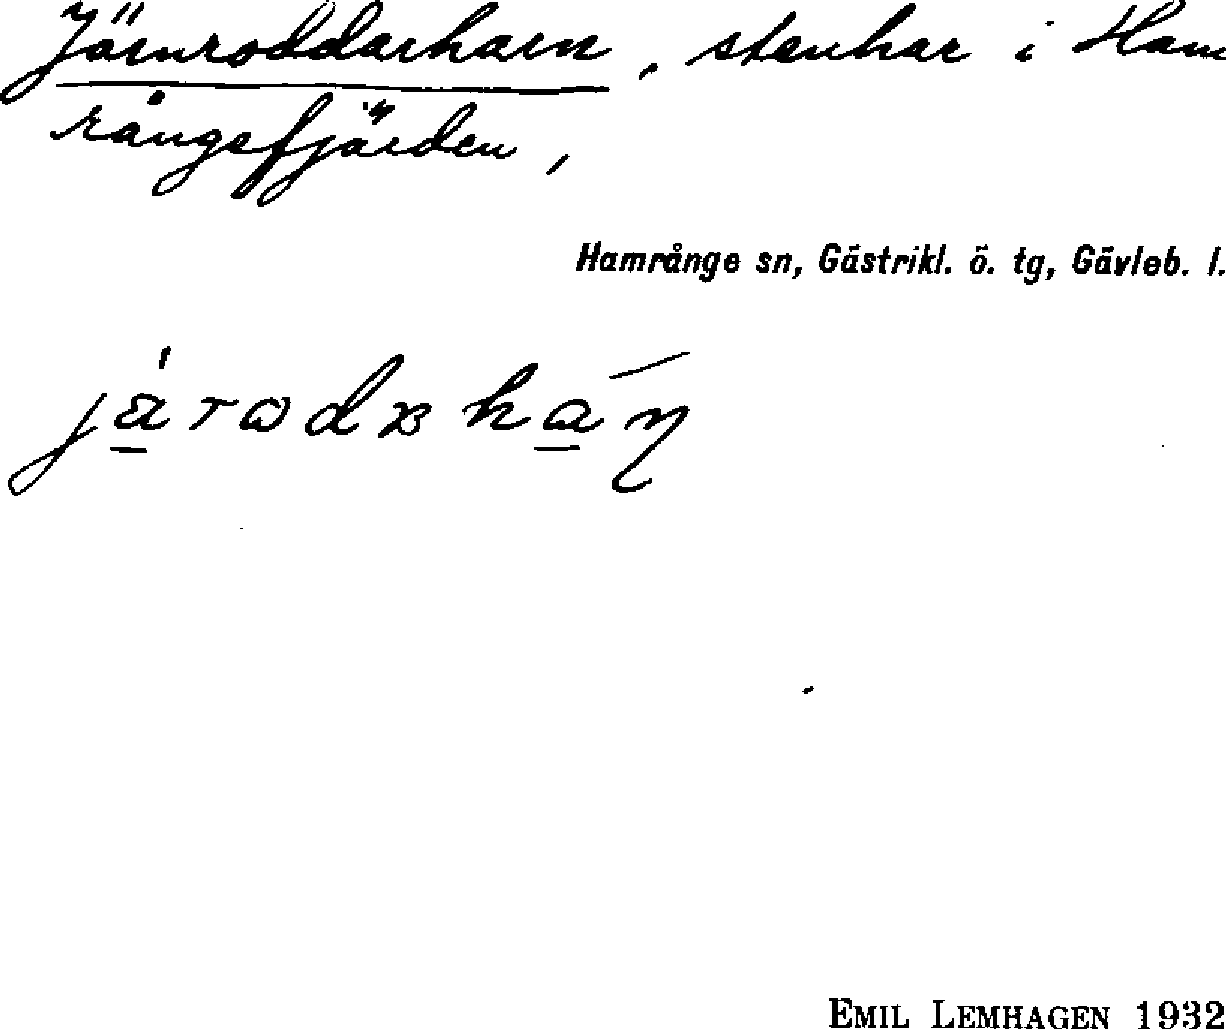 Järnroddarharn, stenhar i Ham
rångefjärden,
Hamrånge sn, Gästrikl. ö. tg, Gävleb. l.
EMIL LEMHAGEN 1932